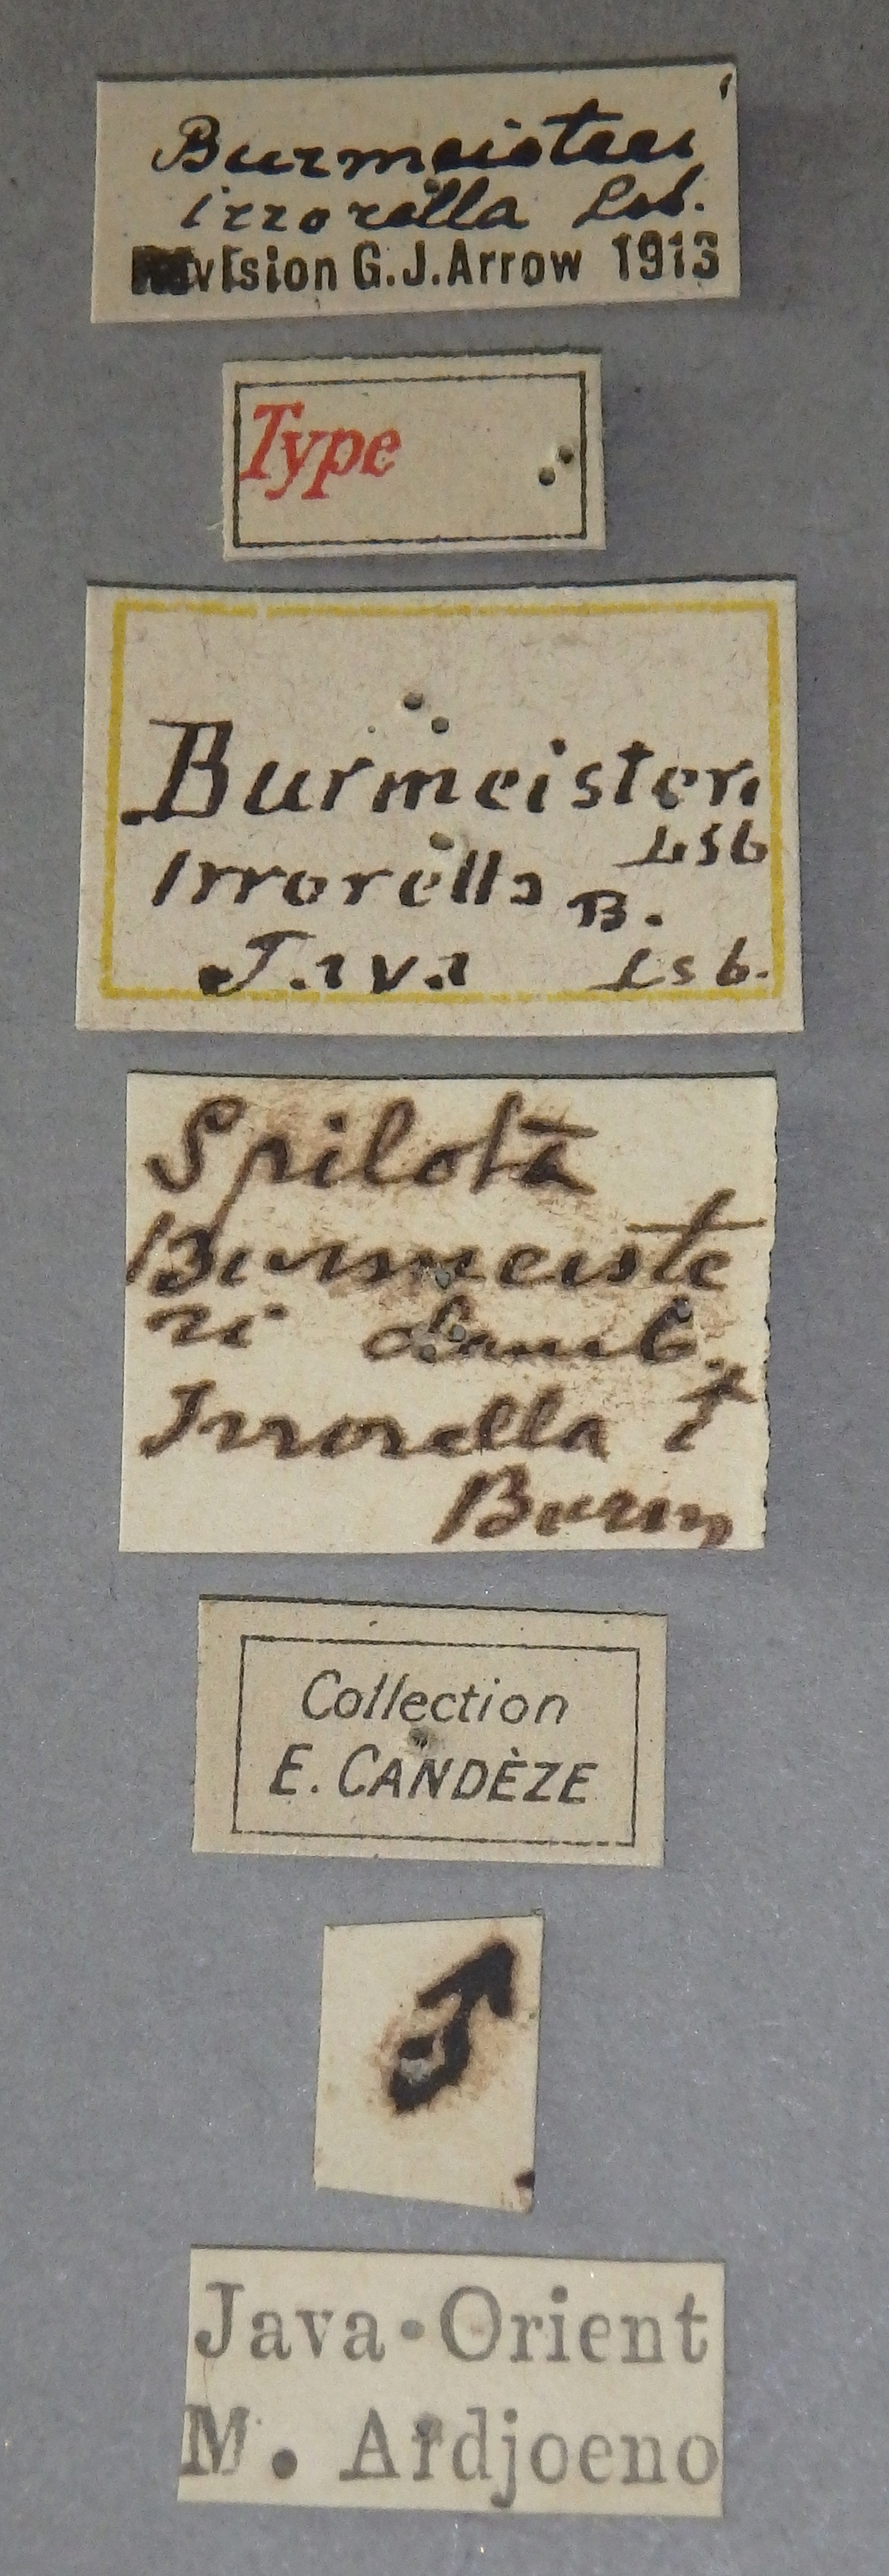 Burmeisteri
irrorella Lsb.
Revision G.J.Arrow 1913
Type
Burmeisteri
Lsb
Irrorella B.
Java Lsb.
Spilota
Burmeiste
ri Lansb.
Irrorella
Burm
Collection
E. CANDÈZE
♂
Java-Orient
M. Ardjoeno